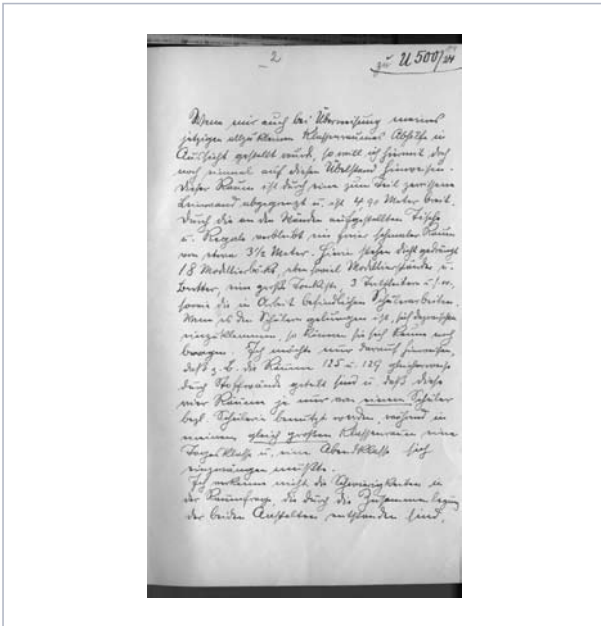 2
zu U 500/24
Wenn mir auch bei Überweisung meines
jetzigen allzu kleinen Klassenraumes Abhilfe in
Aussicht gestellt wurde, so will ich hiermit doch
noch einmal auf diesen Übelstand hinweisen.
Dieser Raum ist durch eine zum Teil zerrissene
Leinwand abgegrenzt u. ist 4,90 Meter breit.
Durch die an den Wänden aufgestellten Tische
u. Regale verbleibt ein freier schmaler Raum
von etwa 3½ Meter. Hierin stehen dicht gedrängt
18 Modellierböcke, ebensoviel Modellierständer u.
Bretter, eine große Tonkiste, 3
sowie die in Arbeit befindlichen Schülerarbeiten.
Wenn es den Schülern gelungen ist, sich dazwischen
einzuklemmen, so können sie sich kaum noch
bewegen. Ich möchte nur darauf hinweisen,
daß z. B. die Räume 125 u. 129 gleicherweise
durch Stoffwände geteilt sind u. daß diese
vier Räume je nur von einem Schüler
bezl. Schülerin benutzt werden, während in
meinem gleich großen Klassenraum eine
Tagesklasse u. eine Abendklasse sich
einzwängen müßte.
Ich verkenne nicht die Schwierigkeiten in
der Raumfrage, die durch die Zusammenlegung
der beiden Anstalten entstanden sind,